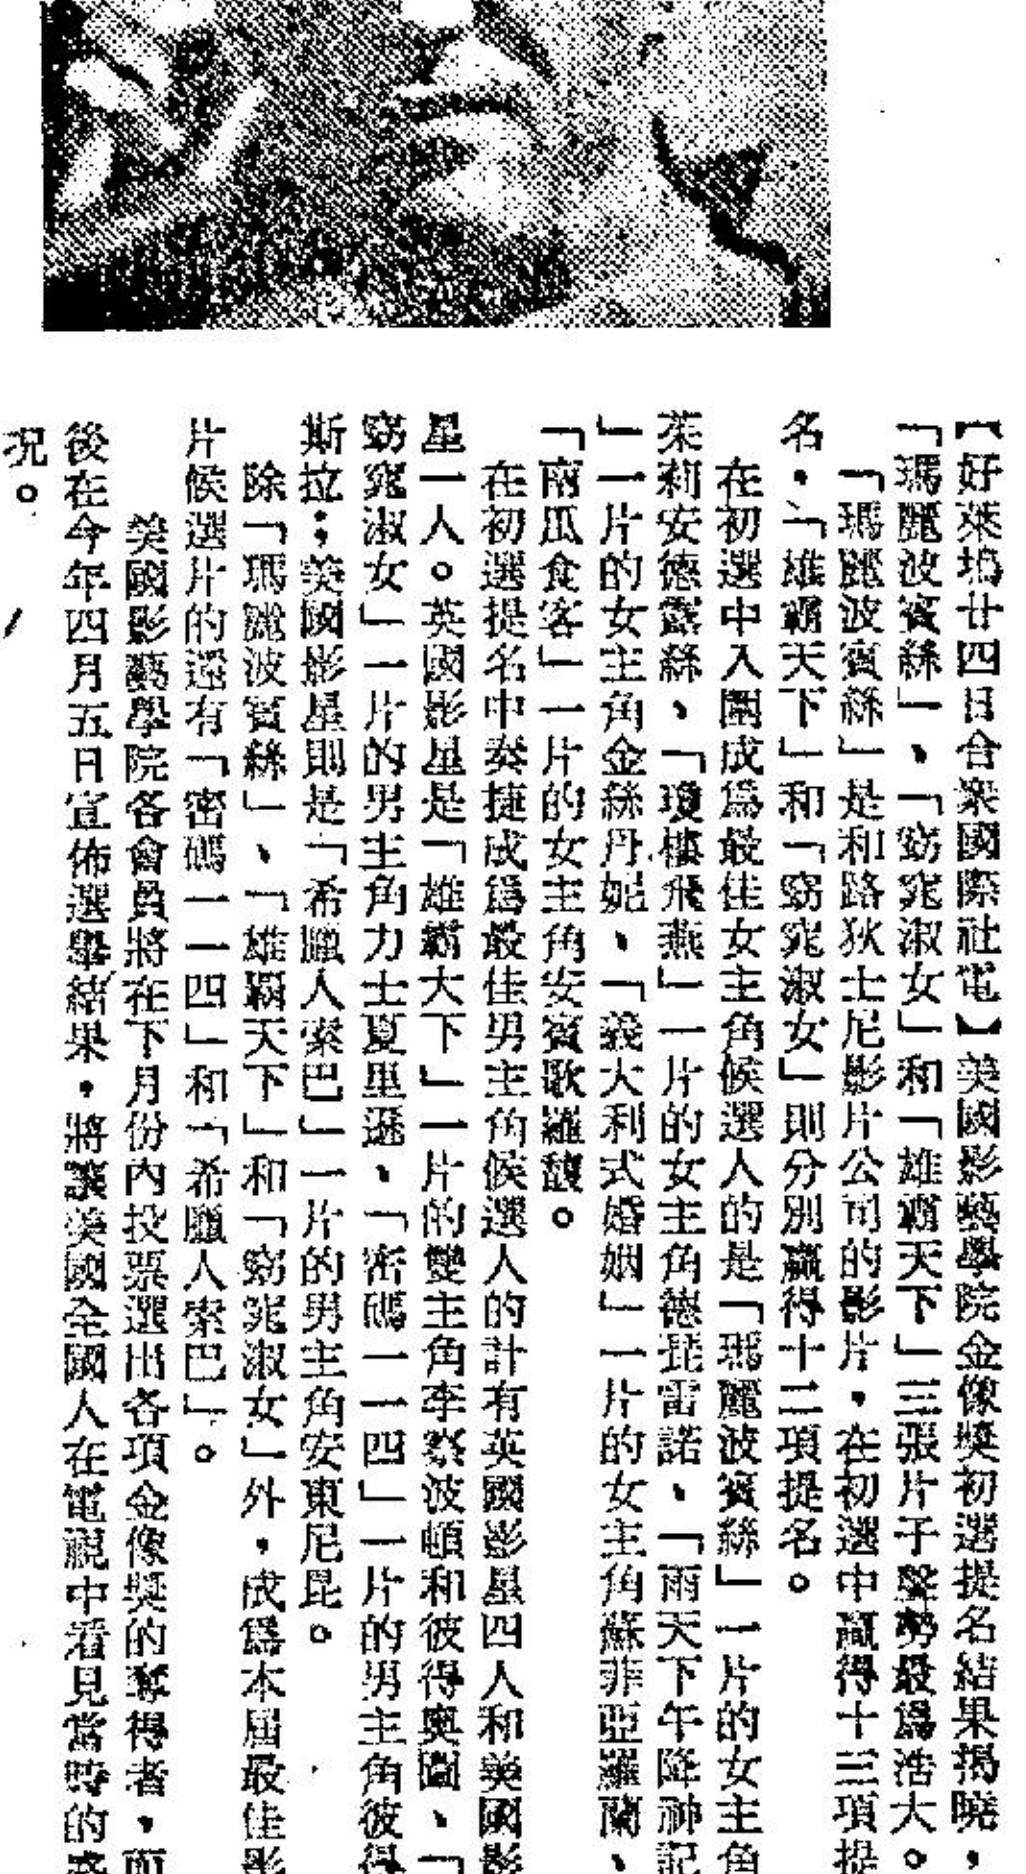 【好萊塢廿四日合衆國際社電】美國影藝學院金像獎初選提名結果揭曉，
「瑪麗波賓絲」、「窈窕淑女」和「雄霸天下」三張片子聲勢最爲浩大。
「瑪麗波賓絲」是和路狄士尼影片公司的影片，在初選中贏得十三項提
名，「雄霸天下」和「窈窕淑女」則分別贏得十二項提名。
在初選中入圍成爲最佳女主角候選人的是「瑪麗波賓絲」一片的女主角
茱莉安德露絲、「瓊樓飛燕」一片的女主角德菲雷諾、「雨天下午降神記
」一片的女主角金絲丹妮、「義大利式婚姻」一片的女主角蘇菲亞羅蘭、
「南瓜食客」一片的女主角安賓歌羅馥。
在初選提名中奏捷成爲最佳男主角候選人的計有英國影星四人和美國影
星一人。英國影星是「雄霸大下」一片的雙主角李察波頓和彼得奧圖、「
窈窕淑女」一片的男主角力士夏里遜、「密碼一一四」一片的男主角彼得
斯拉；美國影星則是「希臘人索巴」一片的男主角安東尼昆。
除「瑪麗波賓絲」、「雄霸天下」和「窈窕淑女」外，成爲本屆最佳影
片候選片的還有「密碼一一四」和「希臘人索巴」。
美國影藝學院各會員將在下月份內投票選出各項金像獎的奪得者，而
後在今年四月五日宣佈選舉結果，將讓美國全國人在電視中看見當時的盛
况。